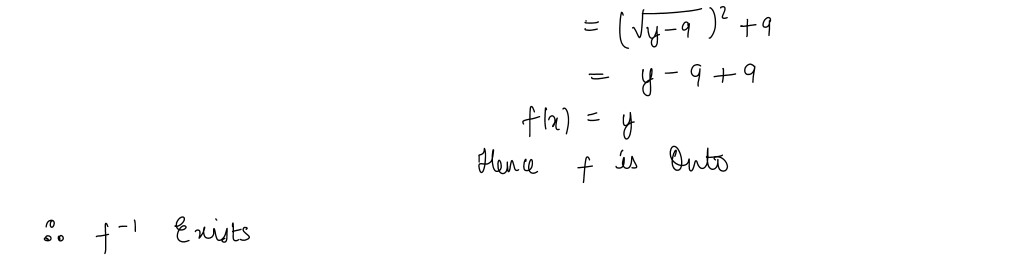 = (√y-9)² + 9
= y - 9 + 9
f(x) = y
Hence f is Onto
∴ f⁻¹ Exists